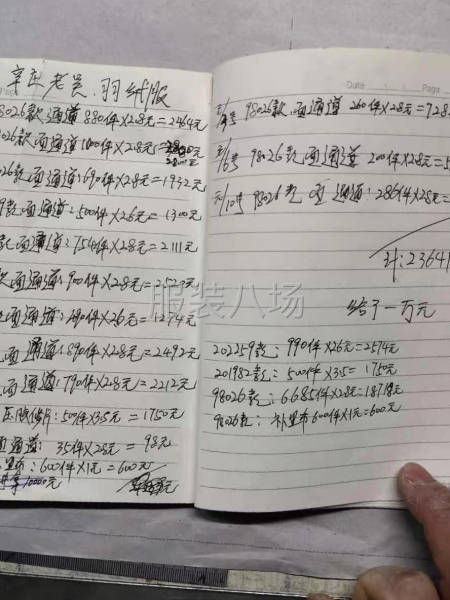 老吴 羽绒服
98026款面通道 880件×28元=2464元
026款面通道 1000件×28元=2800元
026款面通道:690件×28元=1932元
款面通道:500件×26元=1300元
款面通道:754件×28元=2111元
面通道:900件×28元=2520元
面通道:490件×26元=1274元
面通道:890件×28元=2492元
面通道:790件×28元=2212元
500件×3.5元=1750元
面通道: 35件×28元=98元
:600件×1元=600元
10000元
Date Page
98026款.面通道 260件×28元=728
98026款 面通道 200件×28元=5
10号 98026款 面 通道:286件×28元=
计:23641
给了一万元
202259款: 990件×26元=2574元
201982款:500件×3.5=1750元
98026款:6685件×28元=18718元
98026款: 补里布600件×1元=600元
服装八场